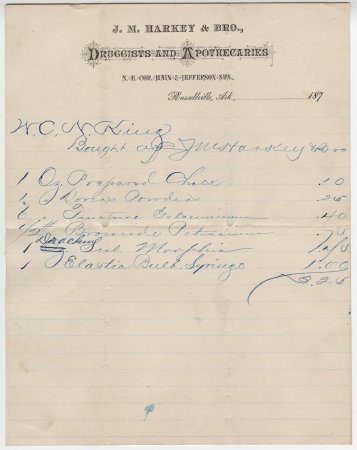 J. M. HARKEY & BRO.,
DRUGGISTS AND APOTHECARIES
N. E. COR. MAIN & JEFFERSON STS.
Russellville, Ark., 187
W. C. N. King
Bought of J M Harkey & Bro
1 Oz Prepared Chalk .10
1 Dovers Powders .25
Tincture Gelseminum .40
Bromide Potassium .75
1 Drachm Sul Morphia
1 Elastic Bulb Syringe 1.00